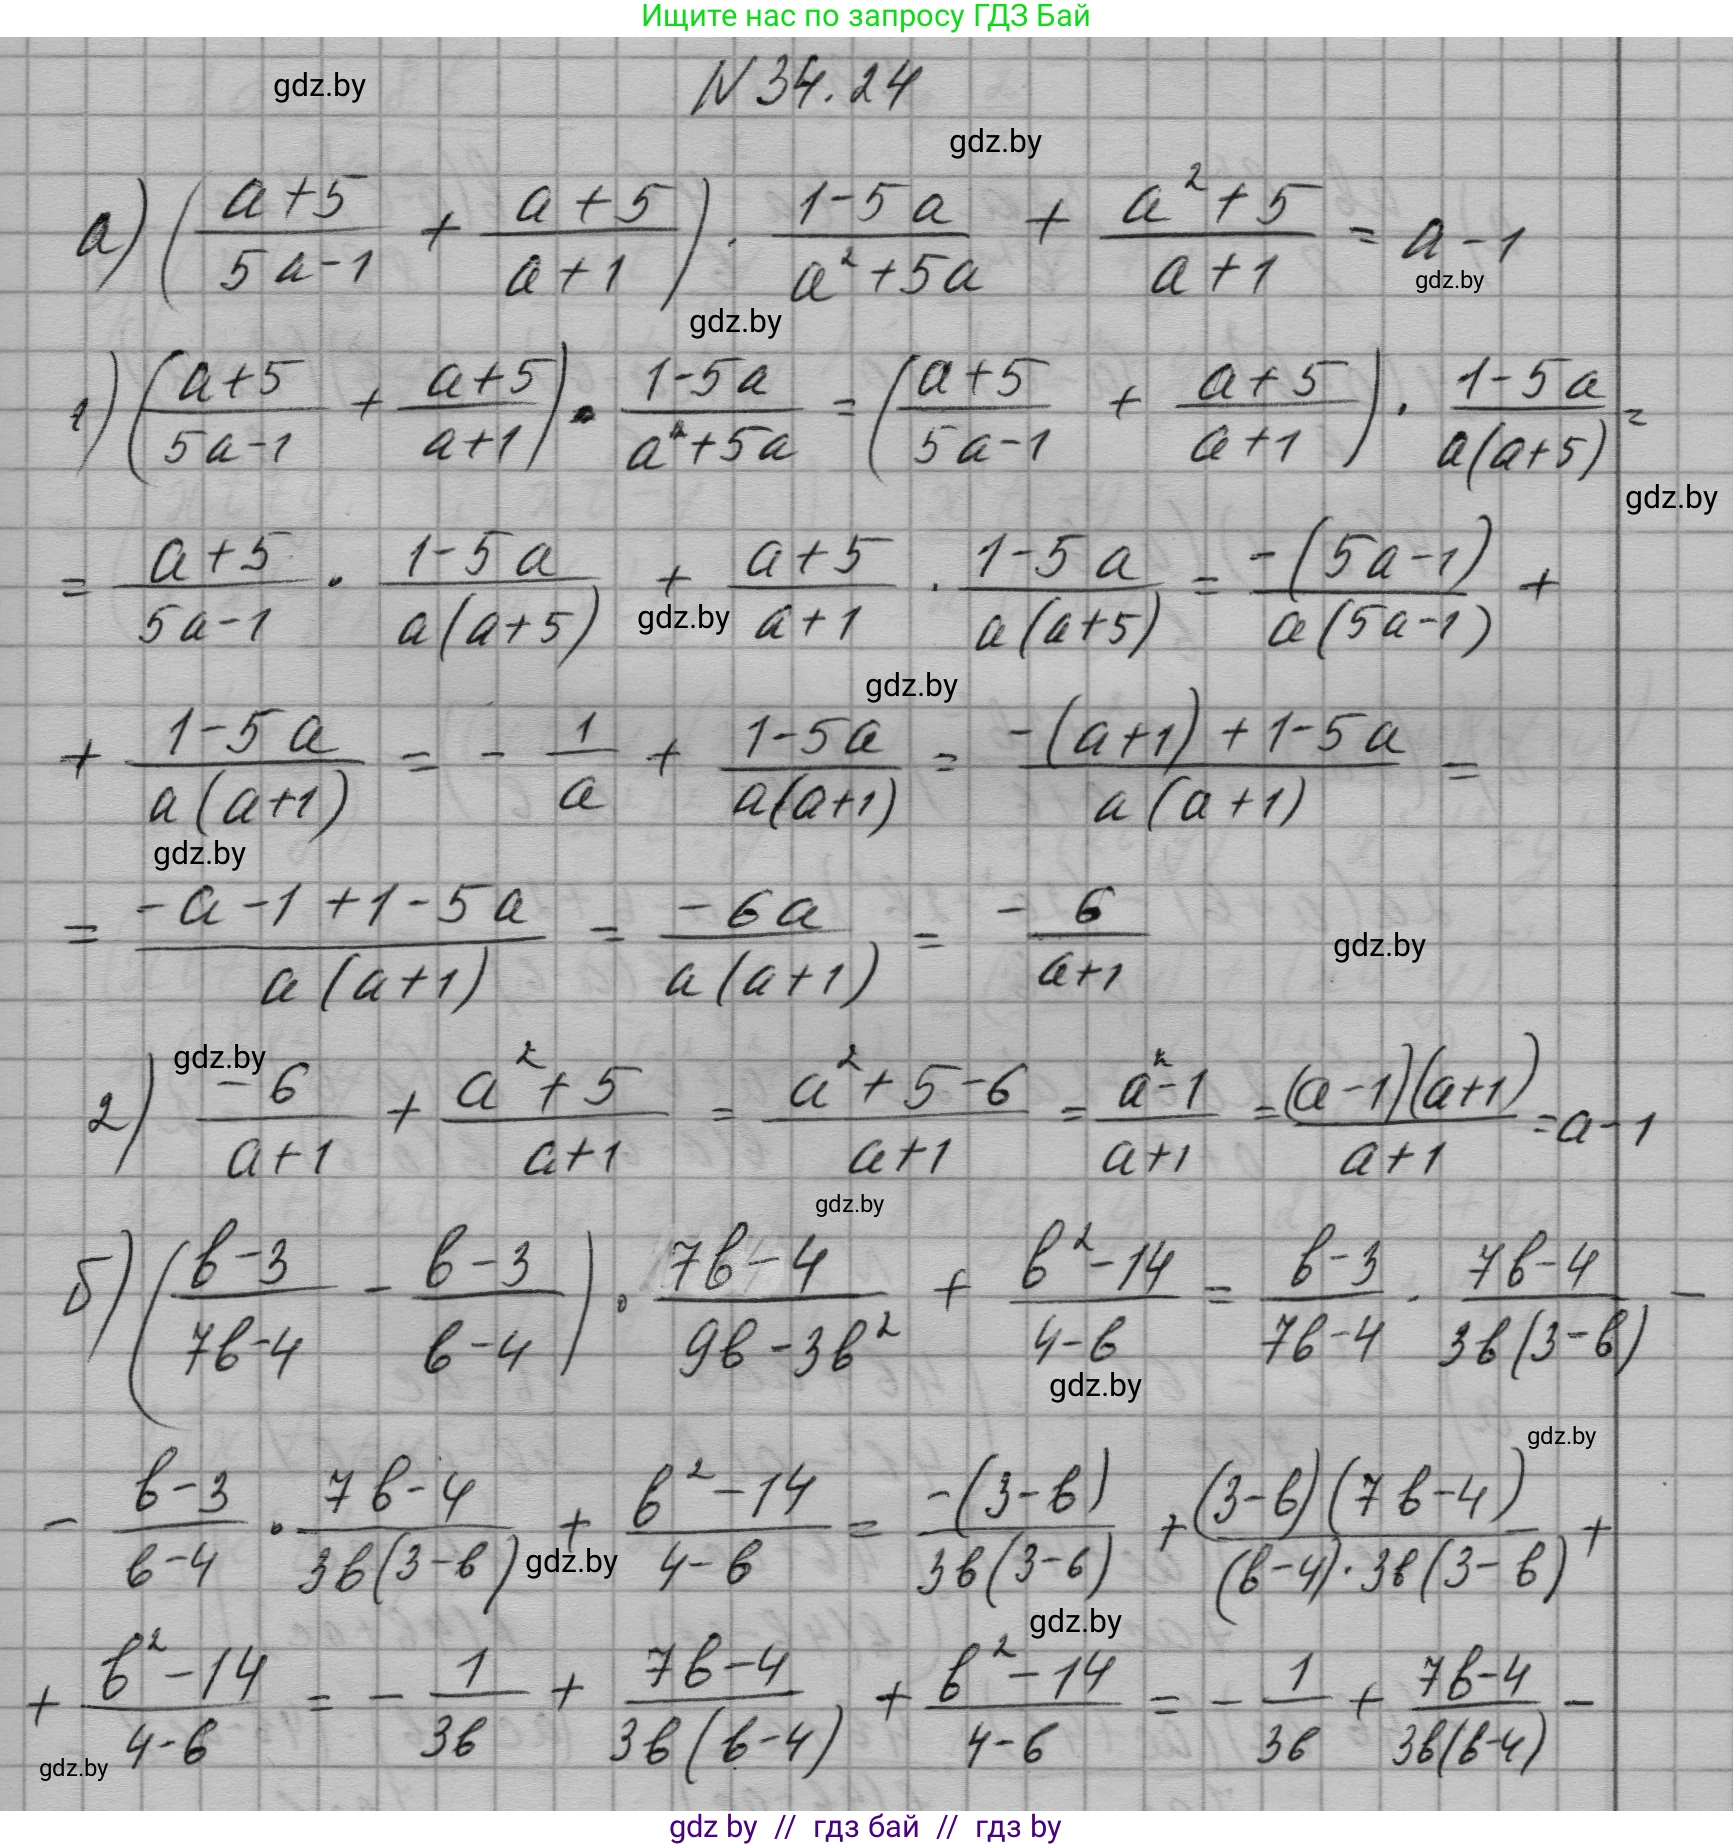 Ищите нас по запросу ГДЗ Бай
gdz.by
N 34.24
gdz.by
а) ((a+5)/(5a-1) + (a+5)/(a+1)) · (1-5a)/(a²+5a) + (a²+5)/(a+1) = a-1
gdz.by
gdz.by
1) ((a+5)/(5a-1) + (a+5)/(a+1)) · (1-5a)/(a²+5a) = ((a+5)/(5a-1) + (a+5)/(a+1)) · (1-5a)/(a(a+5)) =
gdz.by
= (a+5)/(5a-1) · (1-5a)/(a(a+5)) + (a+5)/(a+1) · (1-5a)/(a(a+5)) = (-(5a-1))/(a(5a-1)) +
gdz.by
gdz.by
+ (1-5a)/(a(a+1)) = - 1/a + (1-5a)/(a(a+1)) = (-(a+1)+1-5a)/(a(a+1)) =
gdz.by
= (-a-1+1-5a)/(a(a+1)) = (-6a)/(a(a+1)) = - 6/(a+1)
gdz.by
gdz.by
2) (-6)/(a+1) + (a²+5)/(a+1) = (a²+5-6)/(a+1) = (a²-1)/(a+1) = ((a-1)(a+1))/(a+1) = a-1
gdz.by
б) ((b-3)/(7b-4) - (b-3)/(b-4)) · (7b-4)/(9b-3b²) + (b²-14)/(4-b) = (b-3)/(7b-4) · (7b-4)/(3b(3-b)) -
gdz.by
gdz.by
- (b-3)/(b-4) · (7b-4)/(3b(3-b)) + (b²-14)/(4-b) = (-(3-b))/(3b(3-b)) + ((3-b)(7b-4))/((b-4)·3b(3-b)) +
gdz.by
gdz.by
+ (b²-14)/(4-b) = - 1/(3b) + (7b-4)/(3b(b-4)) + (b²-14)/(4-b) = - 1/(3b) + (7b-4)/(3b(b-4)) -
gdz.by
gdz by // гдз бай // gdz by